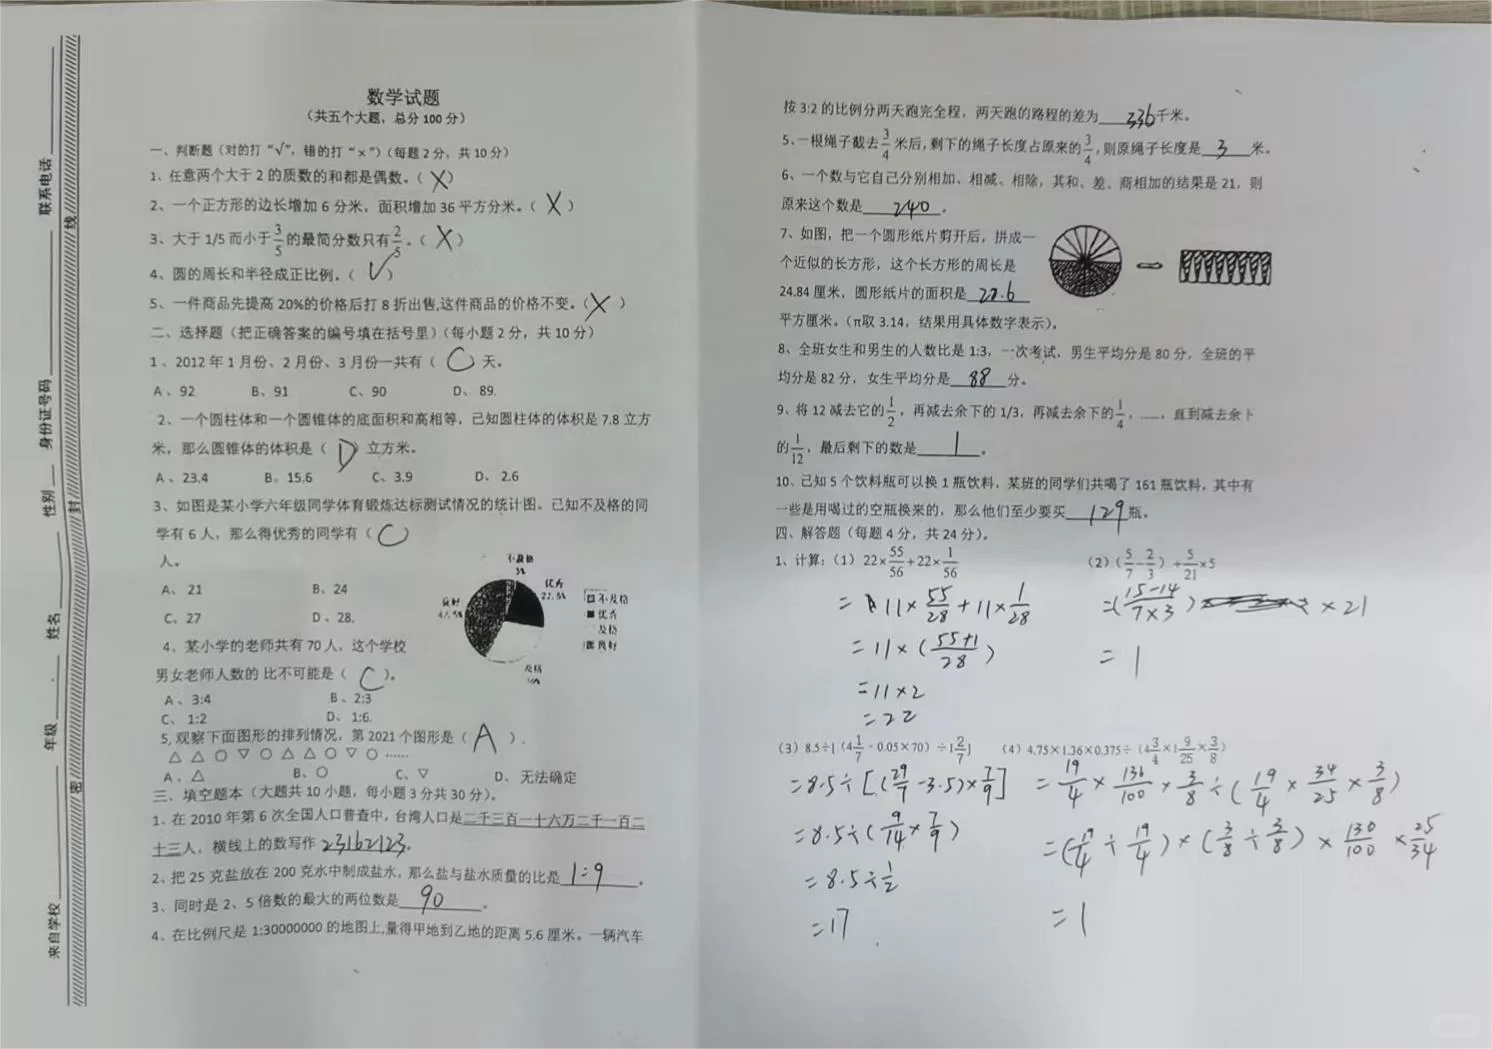 数学试题
（共五个大题，总分 100 分）
一、判断题（对的打“√”，错的打“×”）（每题 2 分，共 10 分）
1、任意两个大于 2 的质数的和都是偶数。（ X ）
2、一个正方形的边长增加 6 分米，面积增加 36 平方分米。（ X ）
3、大于 1/5 而小于 3/5 的最简分数只有 2/5 。（ X ）
4、圆的周长和半径成正比例。（ √ ）
5、一件商品先提高 20%的价格后打 8 折出售,这件商品的价格不变。（ X ）
二、选择题（把正确答案的编号填在括号里）（每小题 2 分，共 10 分）
1、2012 年 1 月份、2 月份、3 月份一共有（ C ）天。
A、92 B、91 C、90 D、89.
2、一个圆柱体和一个圆锥体的底面积和高相等，已知圆柱体的体积是 7.8 立方
米，那么圆锥体的体积是（ D ）立方米。
A、23.4 B、15.6 C、3.9 D、2.6
3、如图是某小学六年级同学体育锻炼达标测试情况的统计图。已知不及格的同
学有 6 人，那么得优秀的同学有（ C ）
人。
A、21 B、24
C、27 D、28.
不及格
5%
优秀
22.5%
良好
及格
不及格
优秀
及格
良好
4、某小学的老师共有 70 人，这个学校
男女老师人数的 比不可能是（ C ）。
A、3:4 B、2:3
C、1:2 D、1:6.
5,观察下面图形的排列情况，第 2021 个图形是（ A ）.
△ △ ○ ▽ ○ △ △ ○ ▽ ○ ……
A、△ B、○ C、▽ D、无法确定
三、填空题本（大题共 10 小题，每小题 3 分共 30 分）。
1、在 2010 年第 6 次全国人口普查中，台湾人口是二千三百一十六万二千一百二
十三人，横线上的数写作 23162123.
2、把 25 克盐放在 200 克水中制成盐水，那么盐与盐水质量的比是 1:9 。
3、同时是 2、5 倍数的最大的两位数是 90 。
4、在比例尺是 1:30000000 的地图上,量得甲地到乙地的距离 5.6 厘米。一辆汽车
来自学校 年级 姓名 性别 身份证号码 联系电话
密 封 线
按 3:2 的比例分两天跑完全程，两天跑的路程的差为 336 千米。
5、一根绳子截去 3/4 米后,剩下的绳子长度占原来的 3/4 ,则原绳子长度是 3 米。
6、一个数与它自己分别相加、相减、相除，其和、差、商相加的结果是 21，则
原来这个数是 240 。
7、如图，把一个圆形纸片剪开后，拼成一
个近似的长方形，这个长方形的周长是
24.84 厘米，圆形纸片的面积是
平方厘米。（π取 3.14，结果用具体数字表示）。
8、全班女生和男生的人数比是 1:3，一次考试，男生平均分是 80 分，全班的平
均分是 82 分，女生平均分是 88 分。
9、将 12 减去它的 1/2 ，再减去余下的 1/3，再减去余下的 1/4 ，……，直到减去余下
的 1/12 ，最后剩下的数是 1 。
10、已知 5 个饮料瓶可以换 1 瓶饮料，某班的同学们共喝了 161 瓶饮料，其中有
一些是用喝过的空瓶换来的，那么他们至少要买 129 瓶。
四、解答题（每题 4 分，共 24 分）。
1、计算：（1）22×55/56+22×1/56 （2）（5/7-2/3）÷5/21×5
= 11×55/28+11×1/28
= 11×(55+1/28)
=11×2
=22
=(15-14/7×3) ×21
= 1
（3）8.5÷[（4 1/7 - 0.05×70）÷1 2/7] （4）4.75×1.36×0.375÷（4 3/4×1 9/25×3/8）
=8.5÷[(29/7-3.5)×7/9]
=8.5÷(9/14×7/9)
=8.5÷1/2
=17
=19/4×136/100×3/8÷(19/4×34/25×3/8)
=(19/4÷19/4)×(3/8÷3/8)×130/100×25/34
=1